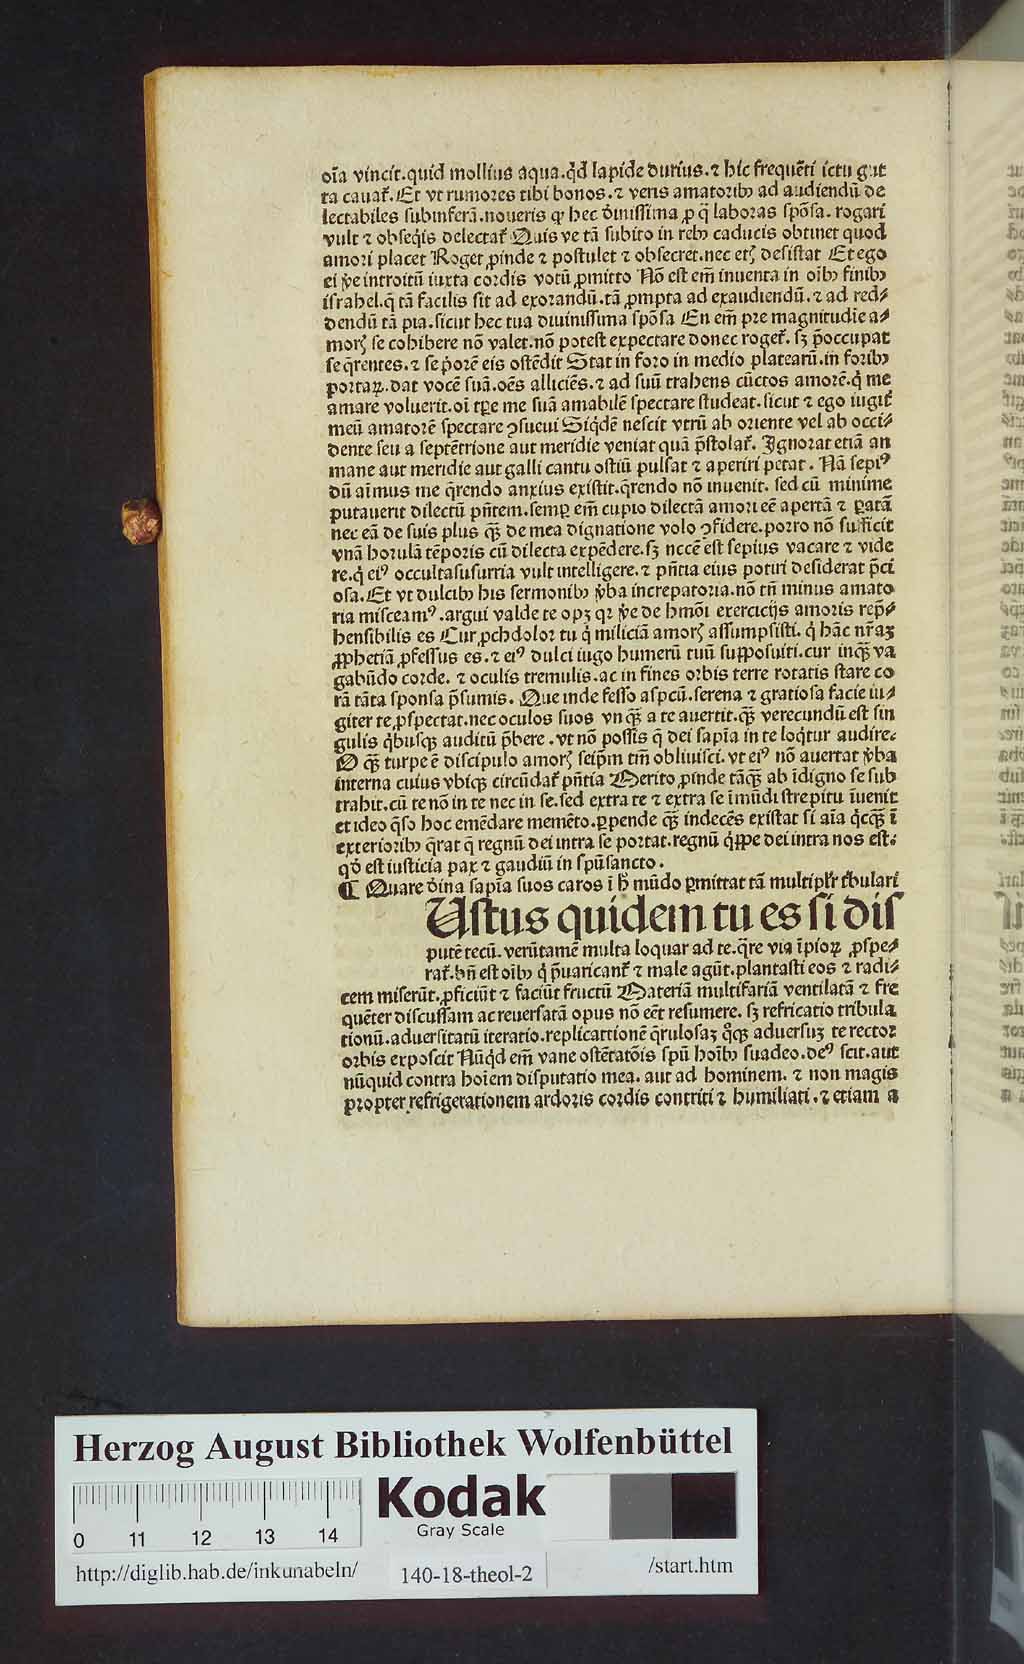 oīa vincit.quid mollius aqua.qͥd lapide durius.⁊ hic frequēti ictu gut
ta cauat᷑.Et vt rumores tibi bonos.⁊ veris amatoribꝫ ad audiendū de
lectabiles subinferā.noueris ꝙ hec diuinissima ꝓ q̄ laboras spōsa. rogari
vult ⁊ obseq̇is delectat᷑ Quis ve tā subito in rebꝫ caducis obtinet quod
amori placet Roget ꝓinde ⁊ postulet ⁊ obsecret.nec etꝫ desistat Et ego
ei introitū iuxta cordis votū ꝓmitto Nō est em̄ inuenta in oībꝫ finibꝫ
israhel.q̄ tā facilis sit ad exorandū.tā ꝓmpta ad exaudiendū.⁊ ad red⸗
dendū tā pia.sicut hec tua diuinissima spōsa En em̄ pre magnitudīe a⸗
morꝭ se cohibere nō valet.nō potest expectare donec roget᷑. sꝫ p̄occupat
se q̄rentes.⁊ se pͥorē eis ostēdit Stat in foro in medio platearū.in foribꝫ
portaꝝ.dat vocē suā.oēs alliciēs.⁊ ad suū trahens cūctos amorē.qͥ me
amare voluerit.oī tꝑe me suā amabilē spectare studeat.sicut ⁊ ego iugit᷑
meū amatorē spectare ꝯsueui Siqͥdē nescit vtrū ab oriente vel ab occi⸗
dente seu a septētrione aut meridie veniat quā p̄stolat᷑. Ignorat etiā an
mane aut meridie aut galli cantu ostiū pulsat ⁊ aperiri petat. Nā sepiꝰ
dū aīmus me q̄rendo anxius existit.q̄rendo nō inuenit. sed cū minime
putauerit dilectū pn̄tem.semꝑ em̄ cupio dilectā amori eē apertā ⁊ ꝑatā
nec eā de suis plus qꝫ̄ de mea dignatione volo ꝯfidere.porro nō sufficit
vnā horulā tēporis cū dilecta expēdere.sꝫ nccē est sepius vacare ⁊ vide
re.qͥ eiꝰ occulta susurria vult intelligere.⁊ pn̄tia eius potiri desiderat p̄ci
osa.Et vt dulcibꝫ his sermonibꝫ v̓ba increpatoria.nō tn̄ minus amato
ria misceamꝰ.argui valde te opꝫ qꝛ de hmōi exercicijs amoris rep̄⸗
hensibilis es Cur ꝓchdolor tu qͥ miliciā amorꝭ assumpsisti.qͥ hāc nr̄aꝫ
ꝓphetiā ꝓfessus es.⁊ eiꝰ dulci iugo humerū tuū supposuiti.cur inqꝫ̄ va
gabūdo corde.⁊ oculis tremulis.ac in fines orbis terre rotatis stare co
rā tāta sponsa p̄sumis. Que inde fesso aspcū.serena ⁊ gratiosa facie iu⸗
giter te ꝓspectat.nec oculos suos vnqꝫ̄ a te auertit.qꝫ̄ verecundū est sin
gulis qͥbusqꝫ auditū p̄bere.vt nō possis q̄ dei sapīa in te loqͥtur audire.
O qꝫ̄ turpe ē discipulo amorꝭ seip̄m tm̄ obliuisci.vt eiꝰ nō auertat v̓ba
interna cuius vbiqꝫ circūdat᷑ pn̄tia Merito ꝓinde tāqꝫ̄ ab īdigno se sub
trahit.cū te nō in te nec in se.sed extra te ⁊ extra se īmūdi strepitu īuenit
et ideo q̄so hoc emēdare memēto.ꝑpende qꝫ̄ indecēs existat si aīa qͥcqꝫ̄ ī
exterioribꝫ q̄rat q̄ regnū dei intra se portat.regnū qͥppe dei intra nos est.
qd̓ est iusticia pax ⁊ gaudiū in spū sancto.
¶ Quare diuina sapīa suos caros ī h̄ mūdo ꝑmittat tā multipl̓r tͥbulari
Ustus quidem tu es si dis
putē tecū.verūtamē multa loquar ad te.q̄re via īpioꝝ ꝓspe⸗
rat᷑.bn̄ est oībꝫ qͥ p̄uaricant᷑ ⁊ male agūt.plantasti eos ⁊ radi⸗
cem miserūt.ꝓficiūt ⁊ faciūt fructū Materiā multifariā ventilatā ⁊ fre
quēter discussam ac reuersatā opus nō eēt resumere.sꝫ refricatio tribula
tionū.aduersitatū iteratio.replicationē q̄rulosaꝫ qͦqꝫ aduersuꝫ te rector
orbis exposcit Nūqͥd em̄ vane ostētatōis spū hoībꝫ suadeo.deꝰ scit.aut
nūquid contra hoīem disputatio mea.aut ad hominem.⁊ non magis
propter refrigerationem ardoris cordis contriti ⁊ humiliati.⁊ etiam a
Herzog August Bibliothek Wolfenbüttel
Kodak
Gray Scale
0 11 12 13 14
http://diglib.hab.de/inkunabeln/ 140-18-theol-2 /start.htm